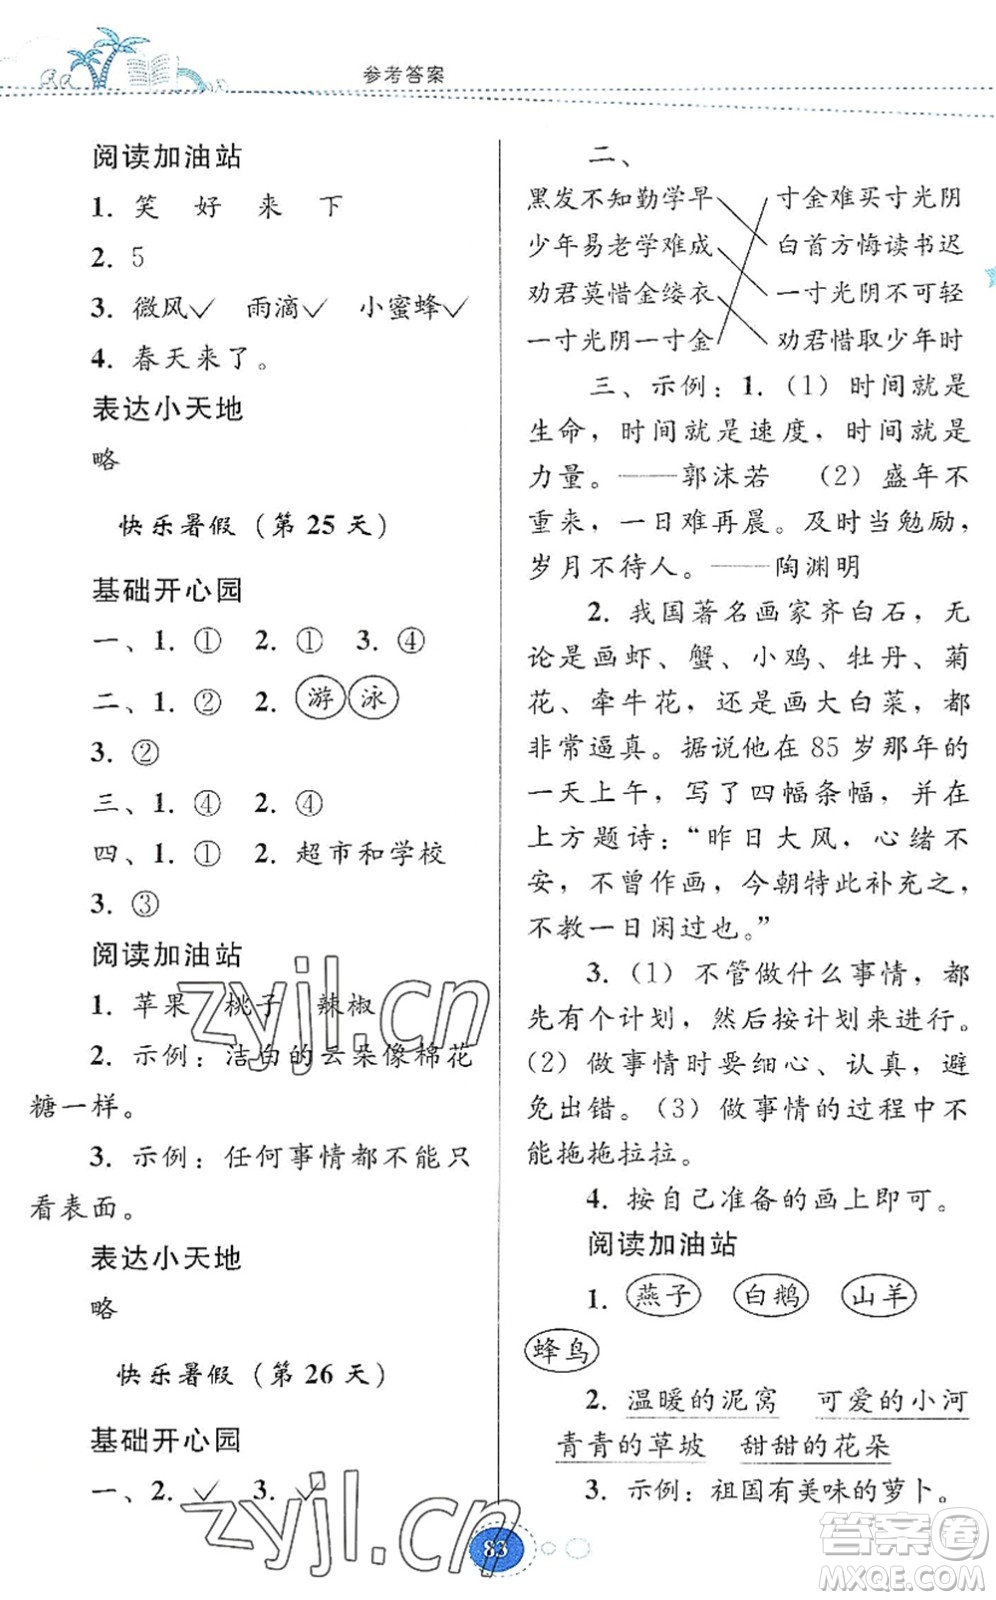 参考答案
阅读加油站
1. 笑 好 来 下
2. 5
3. 微风✓ 雨滴✓ 小蜜蜂✓
4. 春天来了。
表达小天地
略
快乐暑假（第 25 天）
基础开心园
一、1. ① 2. ① 3. ④
二、1. ② 2. 游 泳
3. ②
三、1. ④ 2. ④
四、1. ① 2. 超市和学校
3. ③
阅读加油站
1. 苹果 桃子 辣椒
2. 示例：洁白的云朵像棉花
糖一样。
3. 示例：任何事情都不能只
看表面。
表达小天地
略
快乐暑假（第 26 天）
基础开心园
一、2. ✓ 3. ✓
二、
黑发不知勤学早 一寸金难买寸光阴
少年易老学难成 白首方悔读书迟
劝君莫惜金缕衣 一寸光阴不可轻
一寸光阴一寸金 劝君惜取少年时
三、示例：1.（1）时间就是
生命，时间就是速度，时间就是
力量。——郭沫若 （2）盛年不
重来，一日难再晨。及时当勉励，
岁月不待人。——陶渊明
2. 我国著名画家齐白石，无
论是画虾、蟹、小鸡、牡丹、菊
花、牵牛花，还是画大白菜，都
非常逼真。据说他在 85 岁那年的
一天上午，写了四幅条幅，并在
上方题诗：“昨日大风，心绪不
安，不曾作画，今朝特此补充之，
不教一日闲过也。”
3.（1）不管做什么事情，都
先有个计划，然后按计划来进行。
（2）做事情时要细心、认真，避
免出错。（3）做事情的过程中不
能拖拖拉拉。
4. 按自己准备的画上即可。
阅读加油站
1. 燕子 白鹅 山羊
蜂鸟
2. 温暖的泥窝 可爱的小河
青青的草坡 甜甜的花朵
3. 示例：祖国有美味的萝卜。
83
zyjl.cn
zyjl.cn
答案圈
MXQE.COM